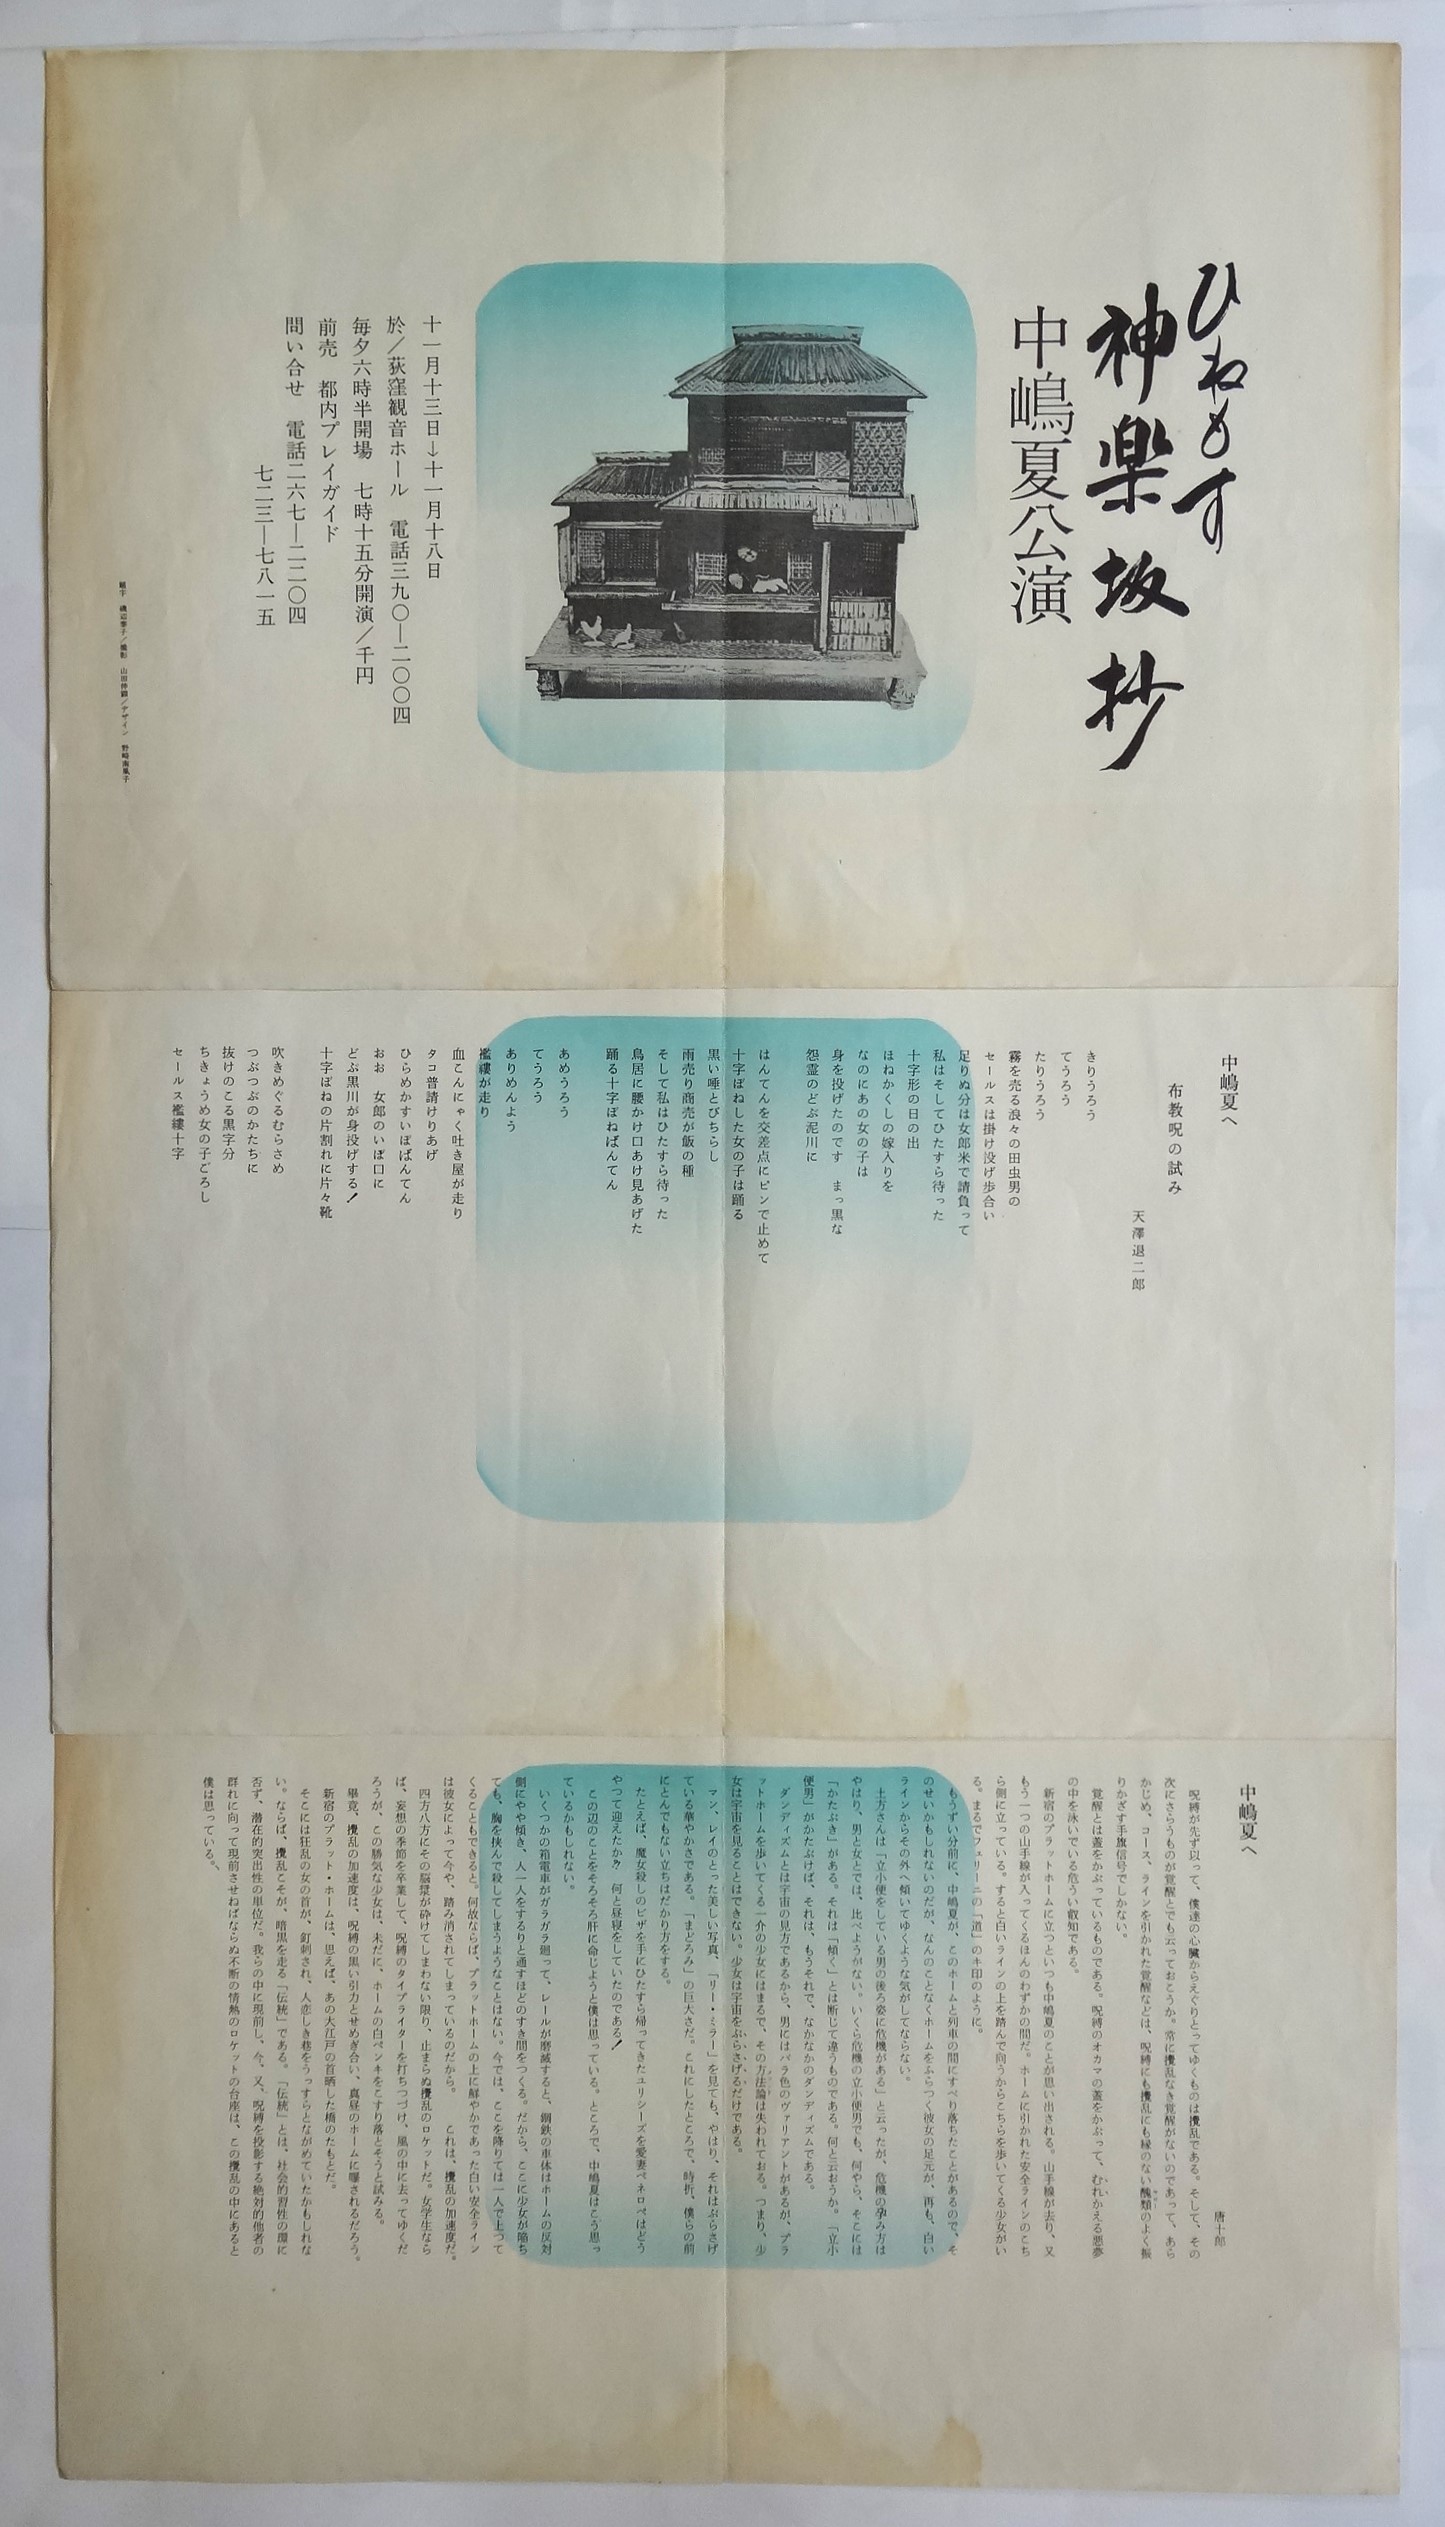 ひねもす
神楽坂抄
中嶋夏公演
十一月十三日→十一月十八日
於／荻窪観音ホール　電話三九〇―二〇〇四
毎夕六時半開場　七時十五分開演／千円
前売　都内プレイガイド
問い合せ　電話二六七―二二〇四
七二三―七八一五
中嶋夏へ
布教呪の試み
天澤退二郎
きりうろう
てうろう
たりうろう
霧を売る浪々の田虫男の
セールスは掛け投げ歩合い
足りぬ分は女郎米で請負って
私はそしてひたすら待った
十字形の日の出
ほねかくしの嫁入りを
なのにあの女の子は
身を投げたのです　まっ黒な
怨霊のどぶ泥川に
はんてんを交差点にピンで止めて
十字ぼねした女の子は踊る
黒い唾とびちらし
雨売り商売が飯の種
そして私はひたすら待った
鳥居に腰かけ口あけ見あげた
踊る十字ぼねばんてん
あめうろう
てうろう
ありめんよう
襤褸が走り
血こんにゃく吐き屋が走り
タコ普請けりあげ
ひらめかすいぼばんてん
おお　女郎のいぼ口に
どぶ黒川が身投げする！
十字ぼねの片割れに片々靴
吹きめぐるむらさめ
つぶつぶのかたちに
抜けのこる黒字分
ちきょうめ女の子ごろし
セールス襤褸十字
中嶋夏へ
唐十郎
呪縛が先ず以って、僕達の心臓からえぐりとってゆくものは攪乱である。そして、その
次にさらうものが覚醒とでも云っておこうか。常に攪乱なき覚醒がないのであって、あら
かじめ、コース、ラインを引かれた覚醒などは、呪縛にも攪乱にも縁のない醜類のよく振
りかざす手旗信号でしかない。
覚醒とは蓋をかぶっているものである。呪縛のオカマの蓋をかぶって、むれかえる悪夢
の中を泳いでいる危うい叡知である。
新宿のプラットホームに立つといつも中嶋夏のことが思い出される。山手線が去り、又
もう一つの山手線が入ってくるほんのわずかの間だ。ホームに引かれた安全ラインのこち
ら側に立っている。すると白いラインの上を踏んで向うからこちらを歩いてくる少女がい
る。まるでフェリーニの「道」のキ印のように。
もうずい分前に、中嶋夏が、このホームと列車の間にすべり落ちたことがあるので、そ
のせいかもしれないのだが、なんのことなくホームをふらつく彼女の足元が、再も、白い
ラインからその外へ傾いてゆくような気がしてならない。
土方さんは「立小便をしている男の後ろ姿に危機がある」と云ったが、危機の孕み方は
やはり、男と女とでは、比べようがない。いくら危機の立小便男でも、何やら、そこには
「かたぶき」がある。それは「傾く」とは断じて違うものである。何と云おうか。「立小
便男」がかたぶけば、それは、もうそれで、なかなかのダンディズムである。
ダンディズムとは宇宙の見方であるから、男にはバラ色のヴァリアントがあるが、プラ
ットホームを歩いてくる一介の少女にはまるで、その方法論は失われておる。つまり、少
女は宇宙を見ることはできない。少女は宇宙をぶらさげるだけである。
マン、レイのとった美しい写真、「リー・ミラー」を見ても、やはり、それはぶらさげ
ている華やかさである。「まどろみ」の巨大さだ。これにしたところで、時折、僕らの前
にとんでもない立ちはだかり方をする。
たとえば、魔女殺しのビザを手にひたすら帰ってきたユリシーズを愛妻ペネロペはどう
やって迎えたか⁈　何と昼寝をしていたのである！
この辺のことをそろそろ肝に命じようと僕は思っている。ところで、中嶋夏はこう思っ
ているかもしれない。
いくつかの箱電車がガラガラ廻って、レールが磨滅すると、鋼鉄の車体はホームの反対
側にやや傾き、人一人をするりと通すほどのすき間をつくる。だから、ここに少女が陥ち
ても、胸を挟んで殺してしまうようなことはない。今では、ここを降りては一人で上って
くることもできると。何故ならば、プラットホームの上に鮮やかであった白い安全ライン
は彼女によって今や、踏み消されてしまっているのだから。　これは、攪乱の加速度だ。
四方八方にその脳漿が砕けてしまわない限り、止まらぬ攪乱のロケットだ。女学生なら
ば、妄想の季節を卒業して、呪縛のタイプライターを打ちつづけ、風の中に去ってゆくだ
ろうが、この勝気な少女は、未だに、ホームの白ペンキをこすり落とそうと試みる。
畢竟、攪乱の加速度は、呪縛の黒い引力とせめぎ合い、真昼のホームに曝されるだろう。
新宿のプラット・ホームは、思えば、あの大江戸の首晒した橋のたもとだ。
そこには狂乱の女の首が、釘刺され、人恋しき巷をうっすらとながめていたかもしれな
い。ならば、攪乱こそが、暗黒を走る「伝統」である。「伝統」とは、社会的習性の環に
否ず、潜在的突出性の単位だ。我らの中に現前し、今、又、呪縛を投影する絶対的他者の
群れに向って現前させねばならぬ不断の情熱のロケットの台座は、この攪乱の中にあると
僕は思っている。